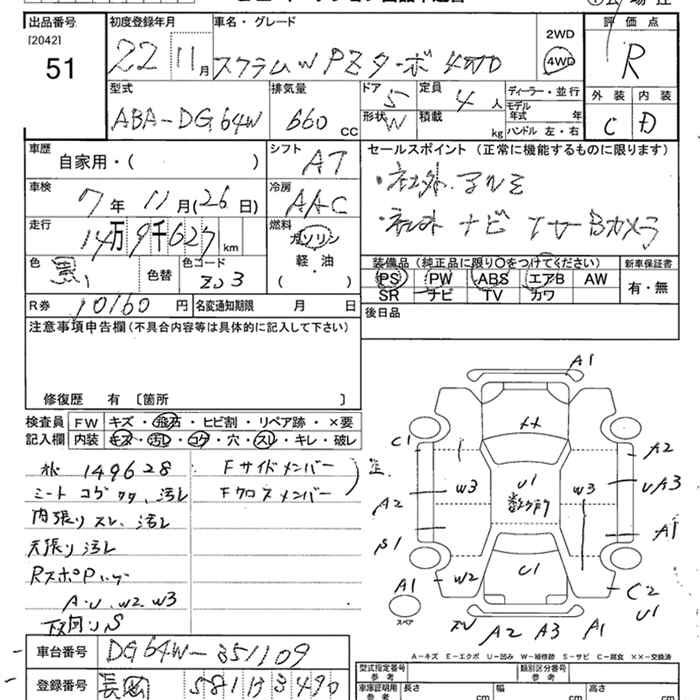 出品番号 初度登録年月 車名・グレード 評価点
[2042] 51 22 11月 スクラムW PZターボ 4WD 2WD 4WD R
型式 排気量 ドア 定員 ディーラー・並行 外装 内装
ABA-DG64W 660 CC 5 4 人 モデル 年式 年 C D
形状 W 積載 kg ハンドル 左・右
車歴 シフト セールスポイント (正常に機能するものに限ります)
自家用・( ) AT ・社外アルミ
車検 冷房
7年 11月(26日) AAC ・社外ナビ TV Bカメラ
走行 燃料
14万9千627km ガソリン 軽・油 ( )
色 黒 色替 色コード ZJ3
装備品 (純正品に限り〇をつけてください) 新車保証書
PS PW ABS エアB AW 有・無
SR ナビ TV カワ
R券 10160 円 名変通知期限 月 日
後日品
注意事項申告欄 (不具合内容等は具体的に記入して下さい)
修復歴 有 〔箇所 〕
検査員 FW キズ・飛石・ヒビ割・リペア跡・×要
記入欄 内装 キズ・汚レ・コゲ・穴・スレ・キレ・破レ
149628 Fサイドメンバー
シートコゲ 汚レ Fクロスメンバー
内張りスレ、汚レ
天張り汚レ
A.U.W2.W3
下回りS
A1
XX
C1 A2
W3 U1 W3 UA3
A2 数ヶ所
S1 A1
A1 W2 U1 C2
スペア U1
A2 A3 A1
A-キズ E-エクボ U-凹み W-補修跡 S-サビ C-腐食 XX-交換済
車台番号 DG64W-351109
型式指定番号 参考 類別区分番号 参考
登録番号
車庫証明用 参考 長さ cm 幅 cm 高さ cm